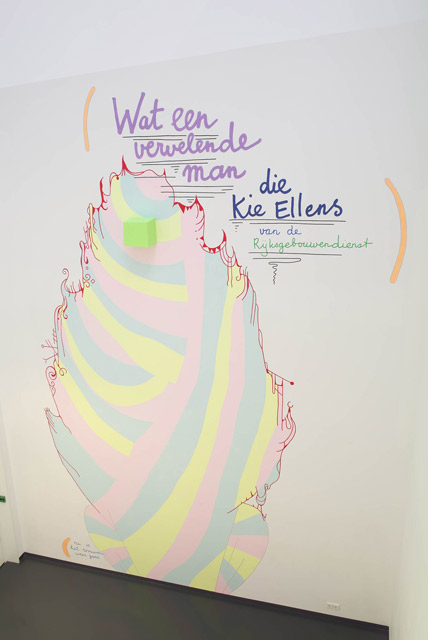 Wat een
vervelende
man
die
Kie Ellens
van de
Rijksgebouwendienst